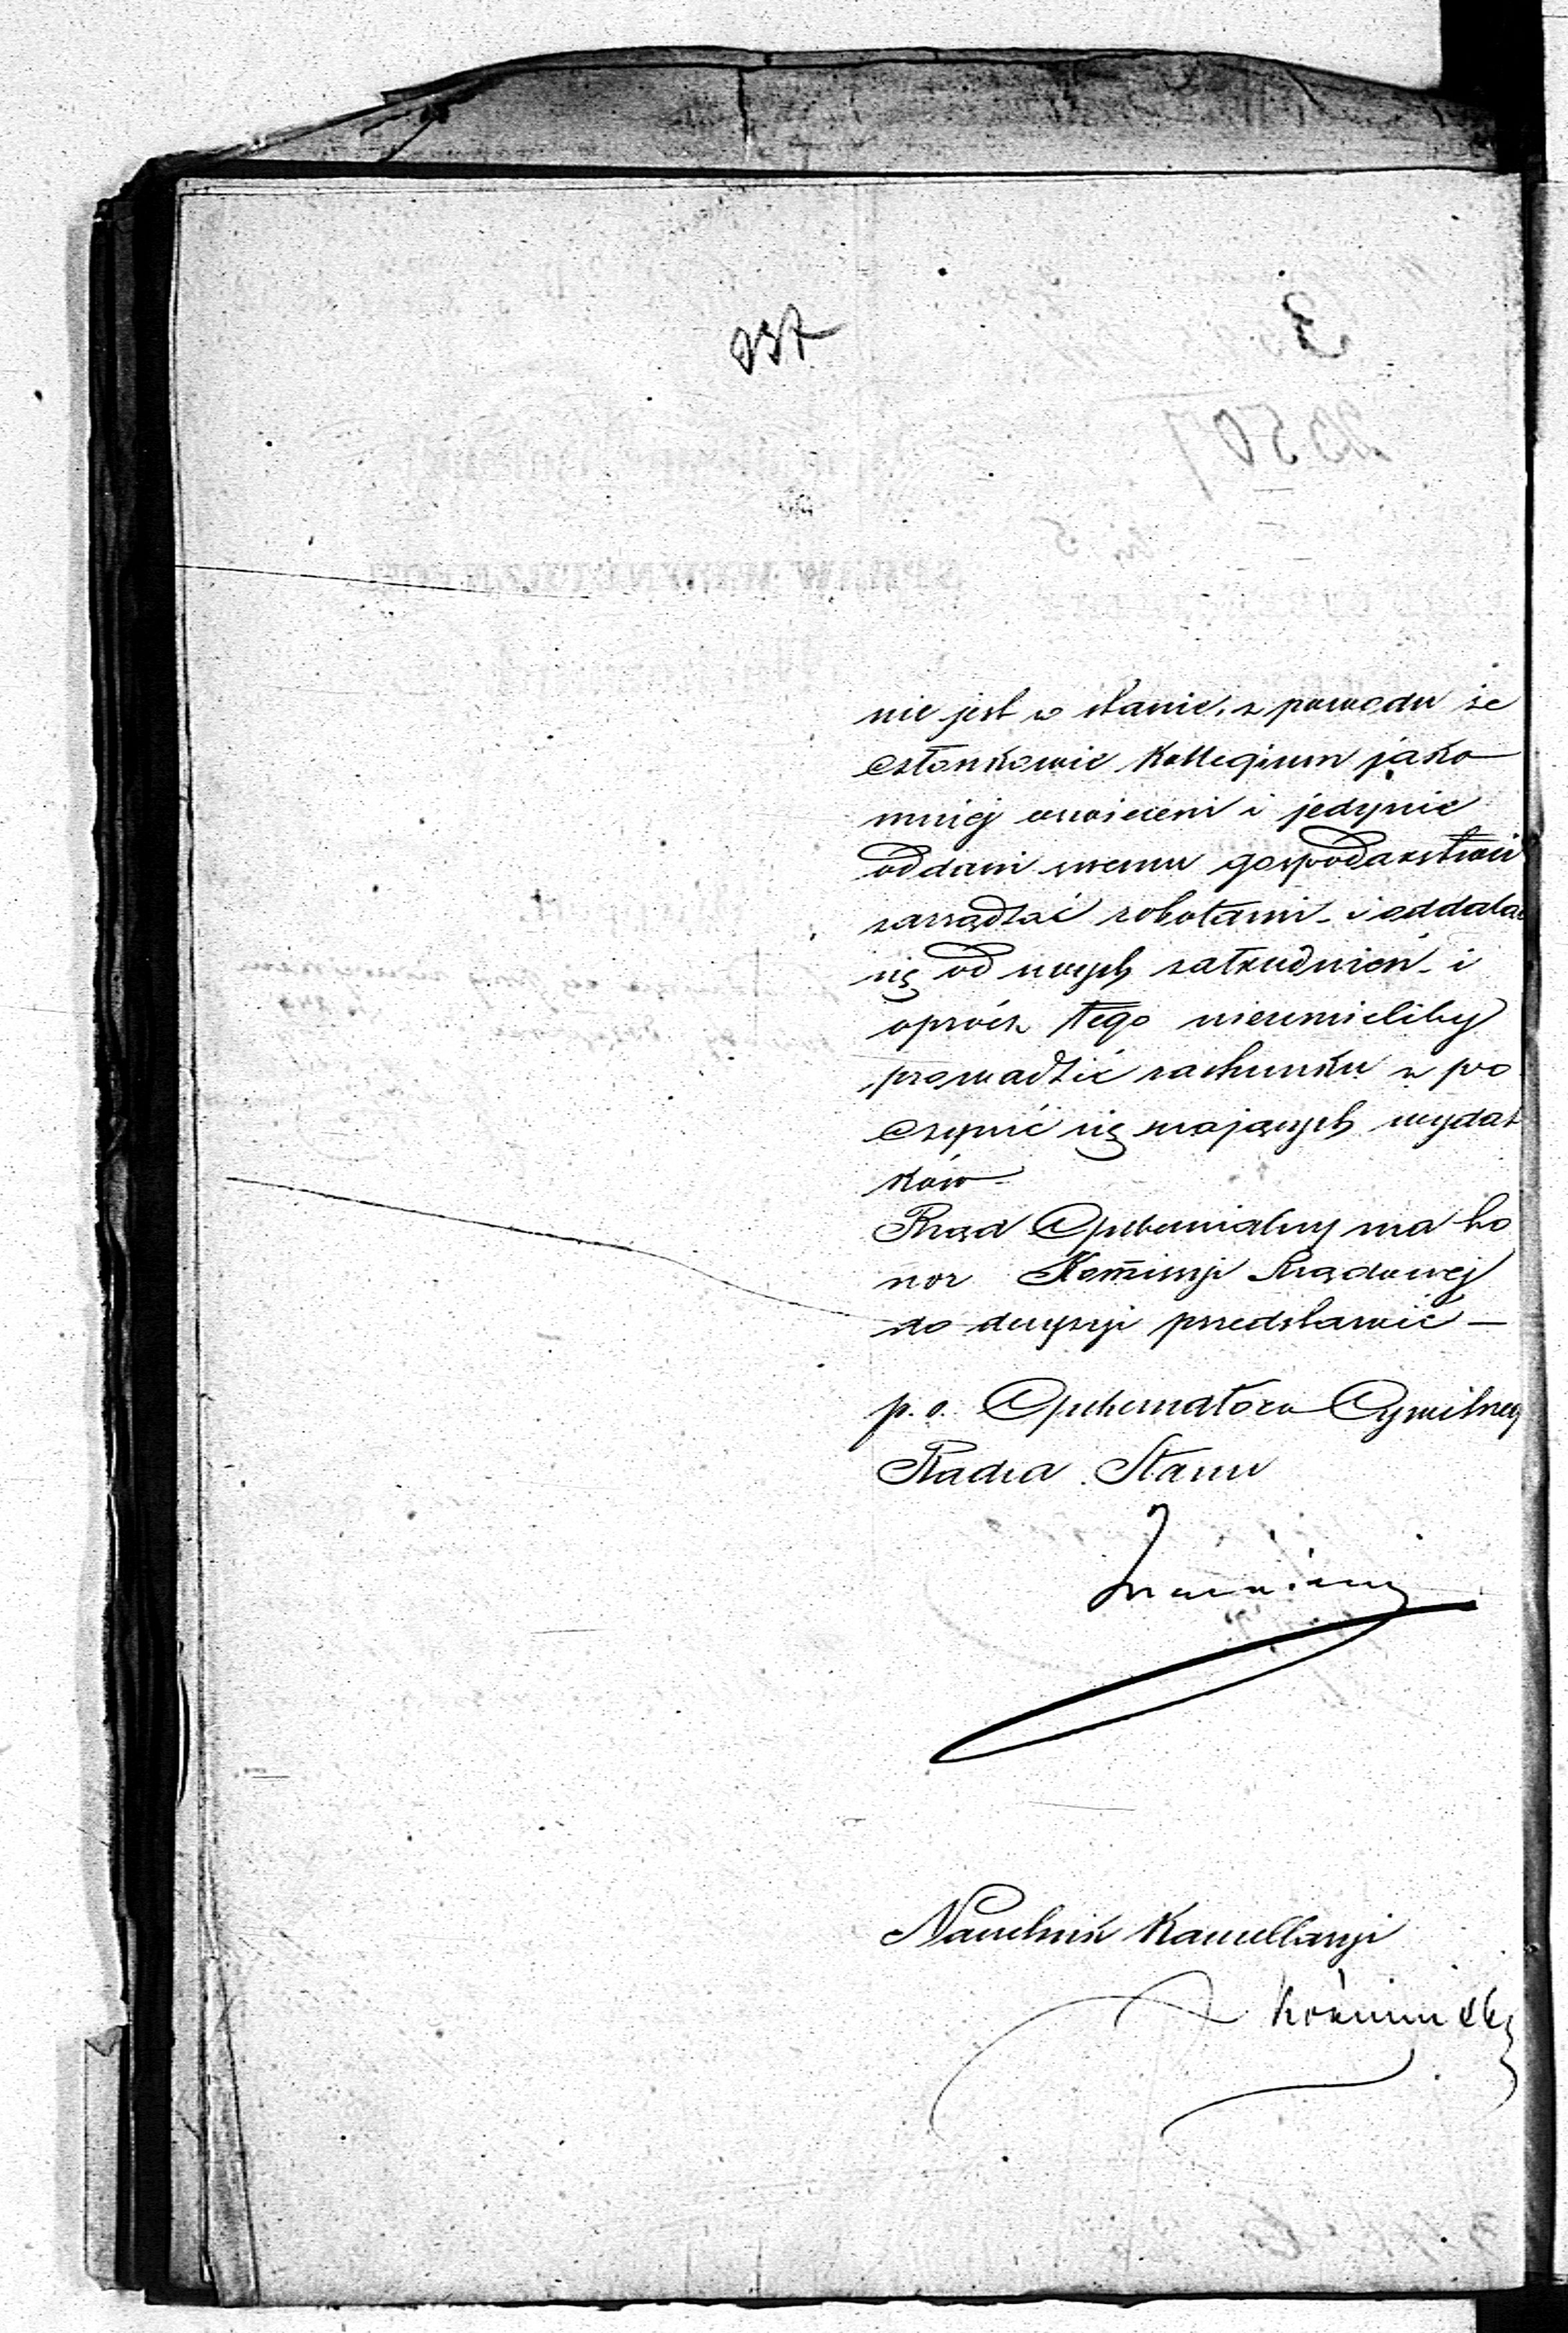 237
nie jest w stanie, z powodu że
członkowie Kollegium jako
mniej oświeceni i jedynie
oddani swemu gospodarstwu
zarządzać robotami i oddalać
się od swych zatrudnień i
oprócz tego nieumieliby
prowadzić rachunku z po
czynić się mających wydat
ków
Rząd Gubernialny ma ho
nor Kommissyi Rządowej
do decyzyi przedstawić —
p. o. Gubernatora Cywilneg
Radca Stanu
Naczelnik Kancellaryi